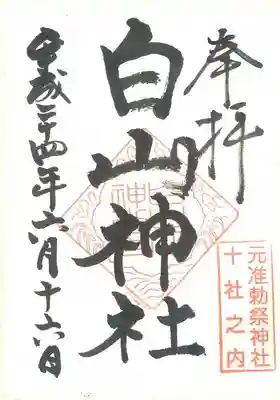 奉拝
白山神社
元准勅祭神社
十社之内
平成二十四年六月十六日